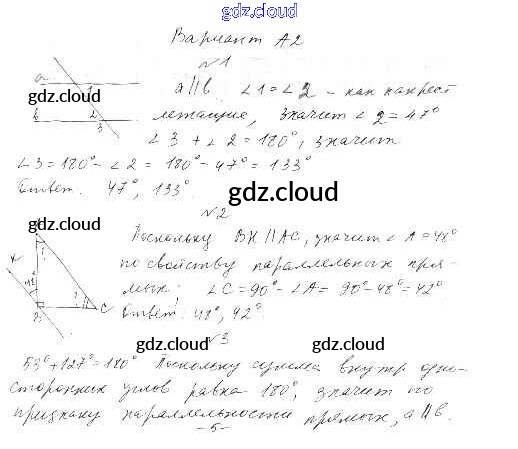 gdz.cloud
Вариант А2
№1
a 1 a∥b. ∠1=∠2 - как накрест
gdz.cloud
b 2 3 лежащие, значит ∠2=47°
∠3+∠2=180°, значит
∠3=180°-∠2=180°-47°=133°
Ответ. 47°, 133°
gdz.cloud
№2
gdz.cloud
Поскольку BK∥AC, значит ∠A=48°
K 48° ? ? B C
по свойству параллельных пря-
мых. ∠C=90°-∠A=90°-48°=42°
Ответ: 48°, 42°.
№3
gdz.cloud gdz.cloud
53°+127°=180° Поскольку сумма внутр. одно-
сторонних углов равна 180°, значит по
признаку параллельности прямых, a∥b.
-5-
gdz.cloud gdz.cloud